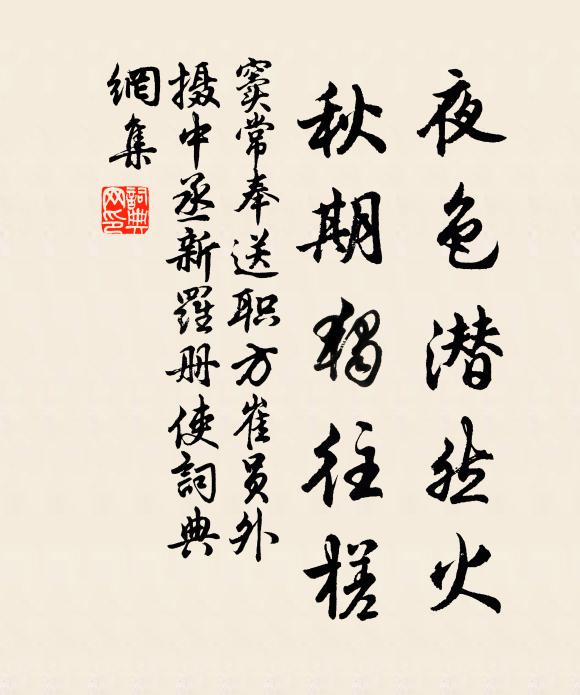 夜色潜然火
秋期独往槎
窦常奉送职方崔员外
摄中丞新羅册使詞典
網集
詞典
网印